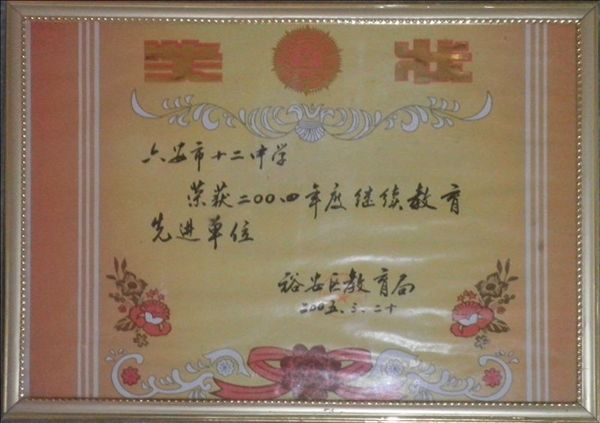 奖状
六安市十二中学
荣获二00四年度继续教育
先进单位
裕安区教育局
二00五.三.二十